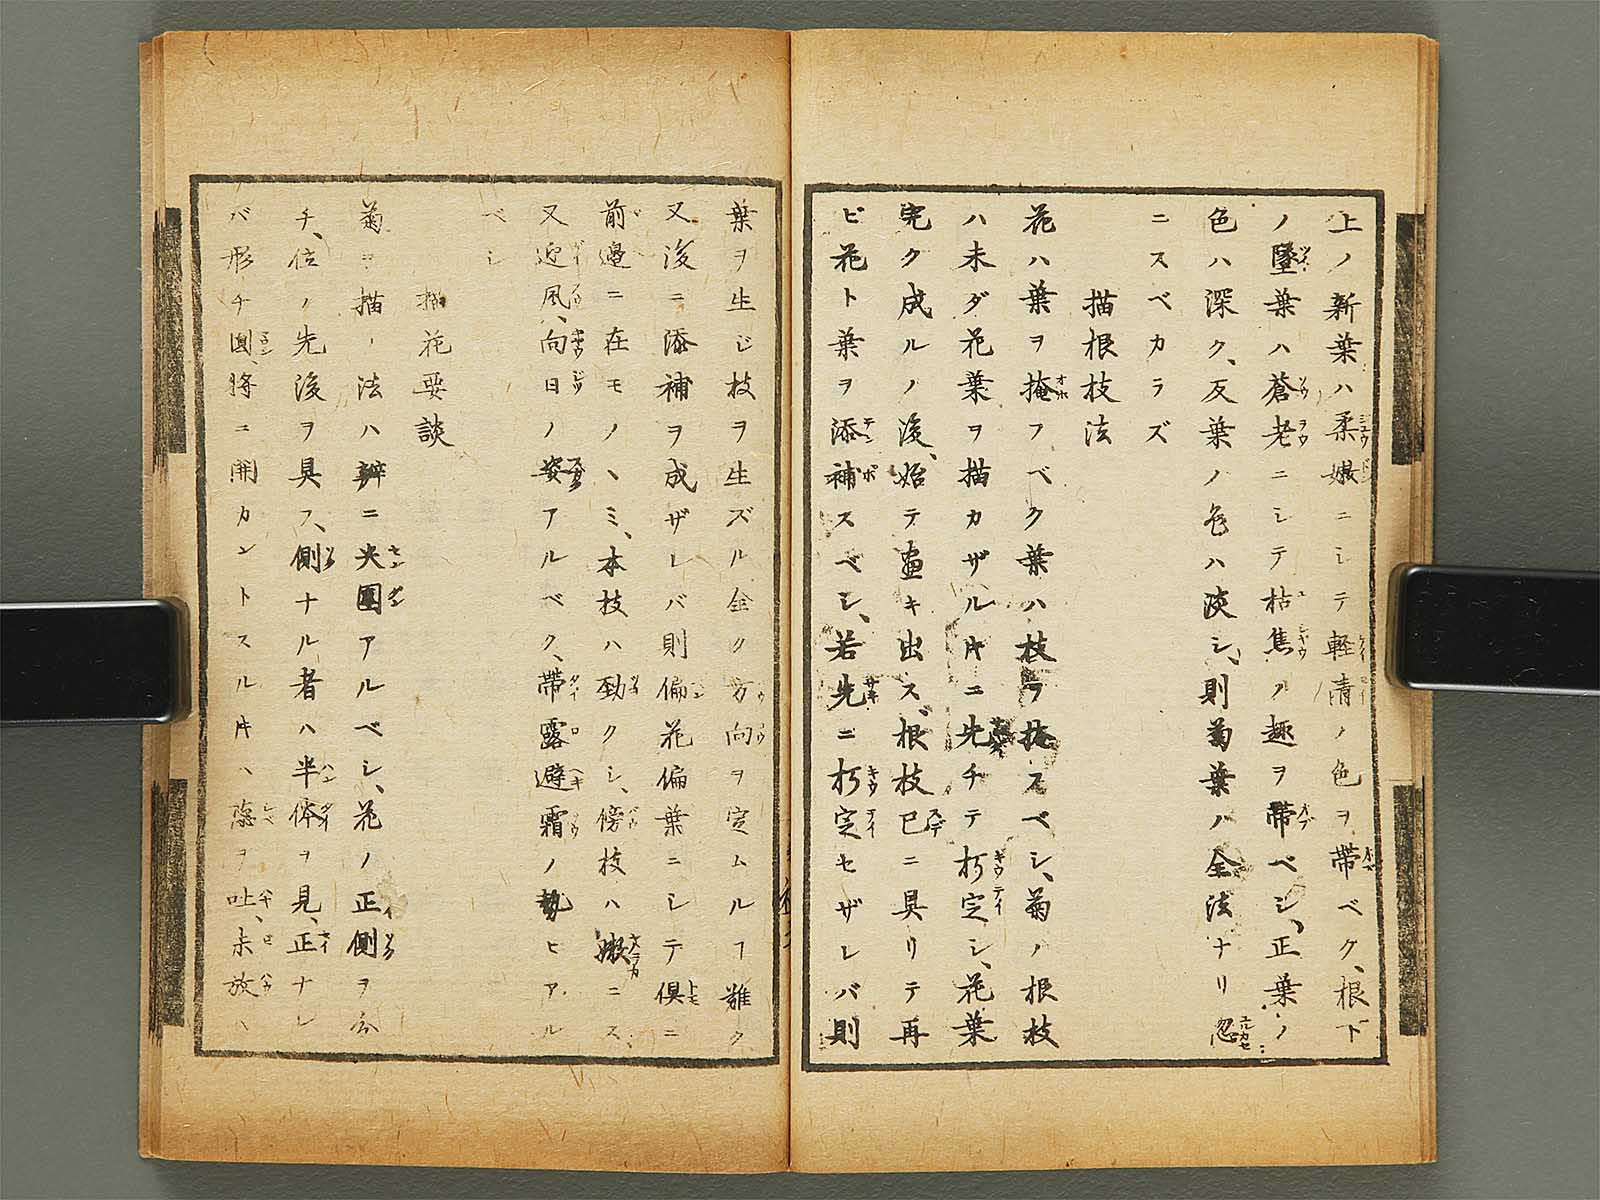 上ノ新葉ハ柔嫩ニシテ軽清ノ色ヲ帶ベク、根下
ノ墜葉ハ蒼老ニシテ枯焦ノ趣ヲ帶ベシ、正葉ノ
色ハ深ク、反葉ノ色ハ淡シ、則菊葉ノ全法ナリ忽
ニスベカラズ
描根枝法
花ハ葉ヲ掩フベク葉ハ枝ヲ掩スベシ、菊ノ根枝
ハ未ダ花葉ヲ描カザル𪜈ニ先チテ朽定シ、花葉
完ク成ルノ後、始テ畫キ出ス、根枝已ニ具リテ再
ビ花ト葉ヲ添補スベシ、若先ニ朽定セザレバ則
葉ヲ生ジ枝ヲ生ズル全ク方向ヲ定ムルヿ難ク
又後ニ添補ヲ成ザレバ則偏花偏葉ニシテ倶ニ
前邊ニ在モノヽミ、本枝ハ勁クシ、傍枝ハ嫩ニス
又迎風、向日ノ姿アルベク、帶露避霜ノ勢ヒアル
ベシ
描花要談
菊ヲ描ノ法ハ辨ニ尖圓アルベシ、花ノ正側ヲ分
チ、位ノ先後ヲ具フ、側ナル者ハ半体ヲ見、正ナレ
バ形チ圓、將ニ開カントスル𪜈ハ蕊ヲ吐、未放ハ